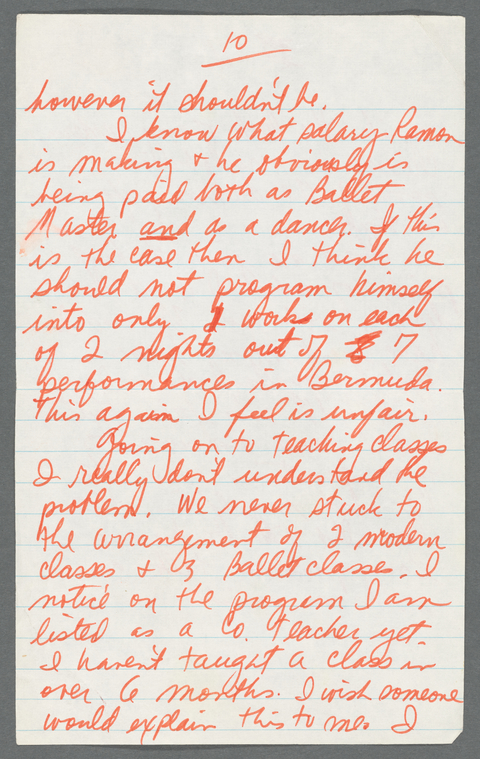 10
however it shouldn't be.
I know what salary Ramon
is making & he obviously is
being paid both as Ballet
Master and as a dancer. If this
is the case then I think he
should not program himself
into only 1 works on each
of 2 nights out of 7
performances in Bermuda.
This again I feel is unfair.
Going on to teaching classes
I really don't understand the
problem. We never stuck to
the arrangement of 2 modern
classes & 3 Ballet classes. I
notice on the program I am
listed as a Co. teacher yet
I haven't taught a class in
over 6 months. I wish someone
would explain this to me. I